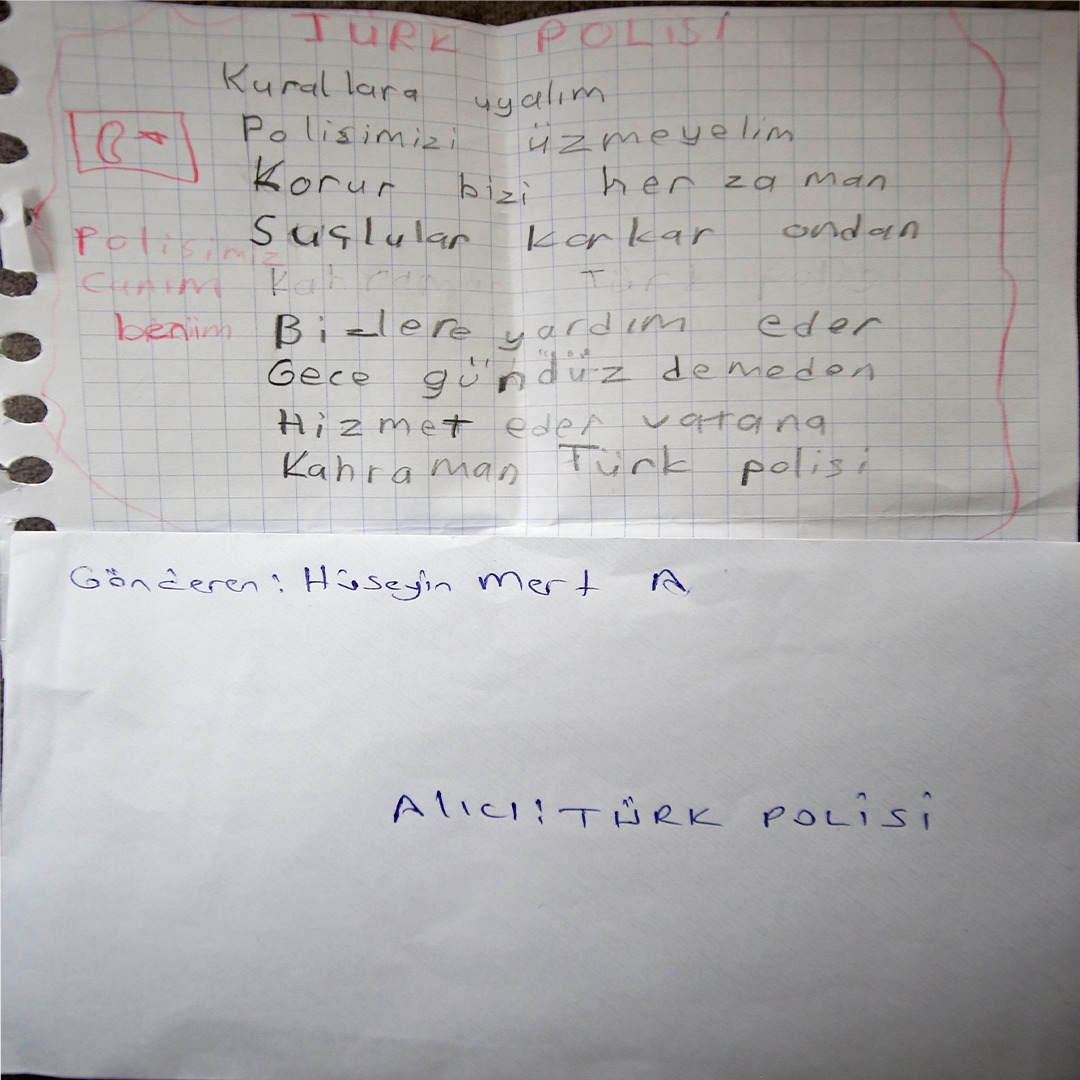 TÜRK POLİSİ
Kurallara uyalım
Polisimizi üzmeyelim
Korur bizi her zaman
Suçlular korkar ondan
Polisimiz
Canım
benim
Bizlere yardım eder
Gece gündüz demeden
Hizmet eder vatana
Kahraman Türk polisi
Gönderen: Hüseyin Mert A
Alıcı: TÜRK POLİSİ